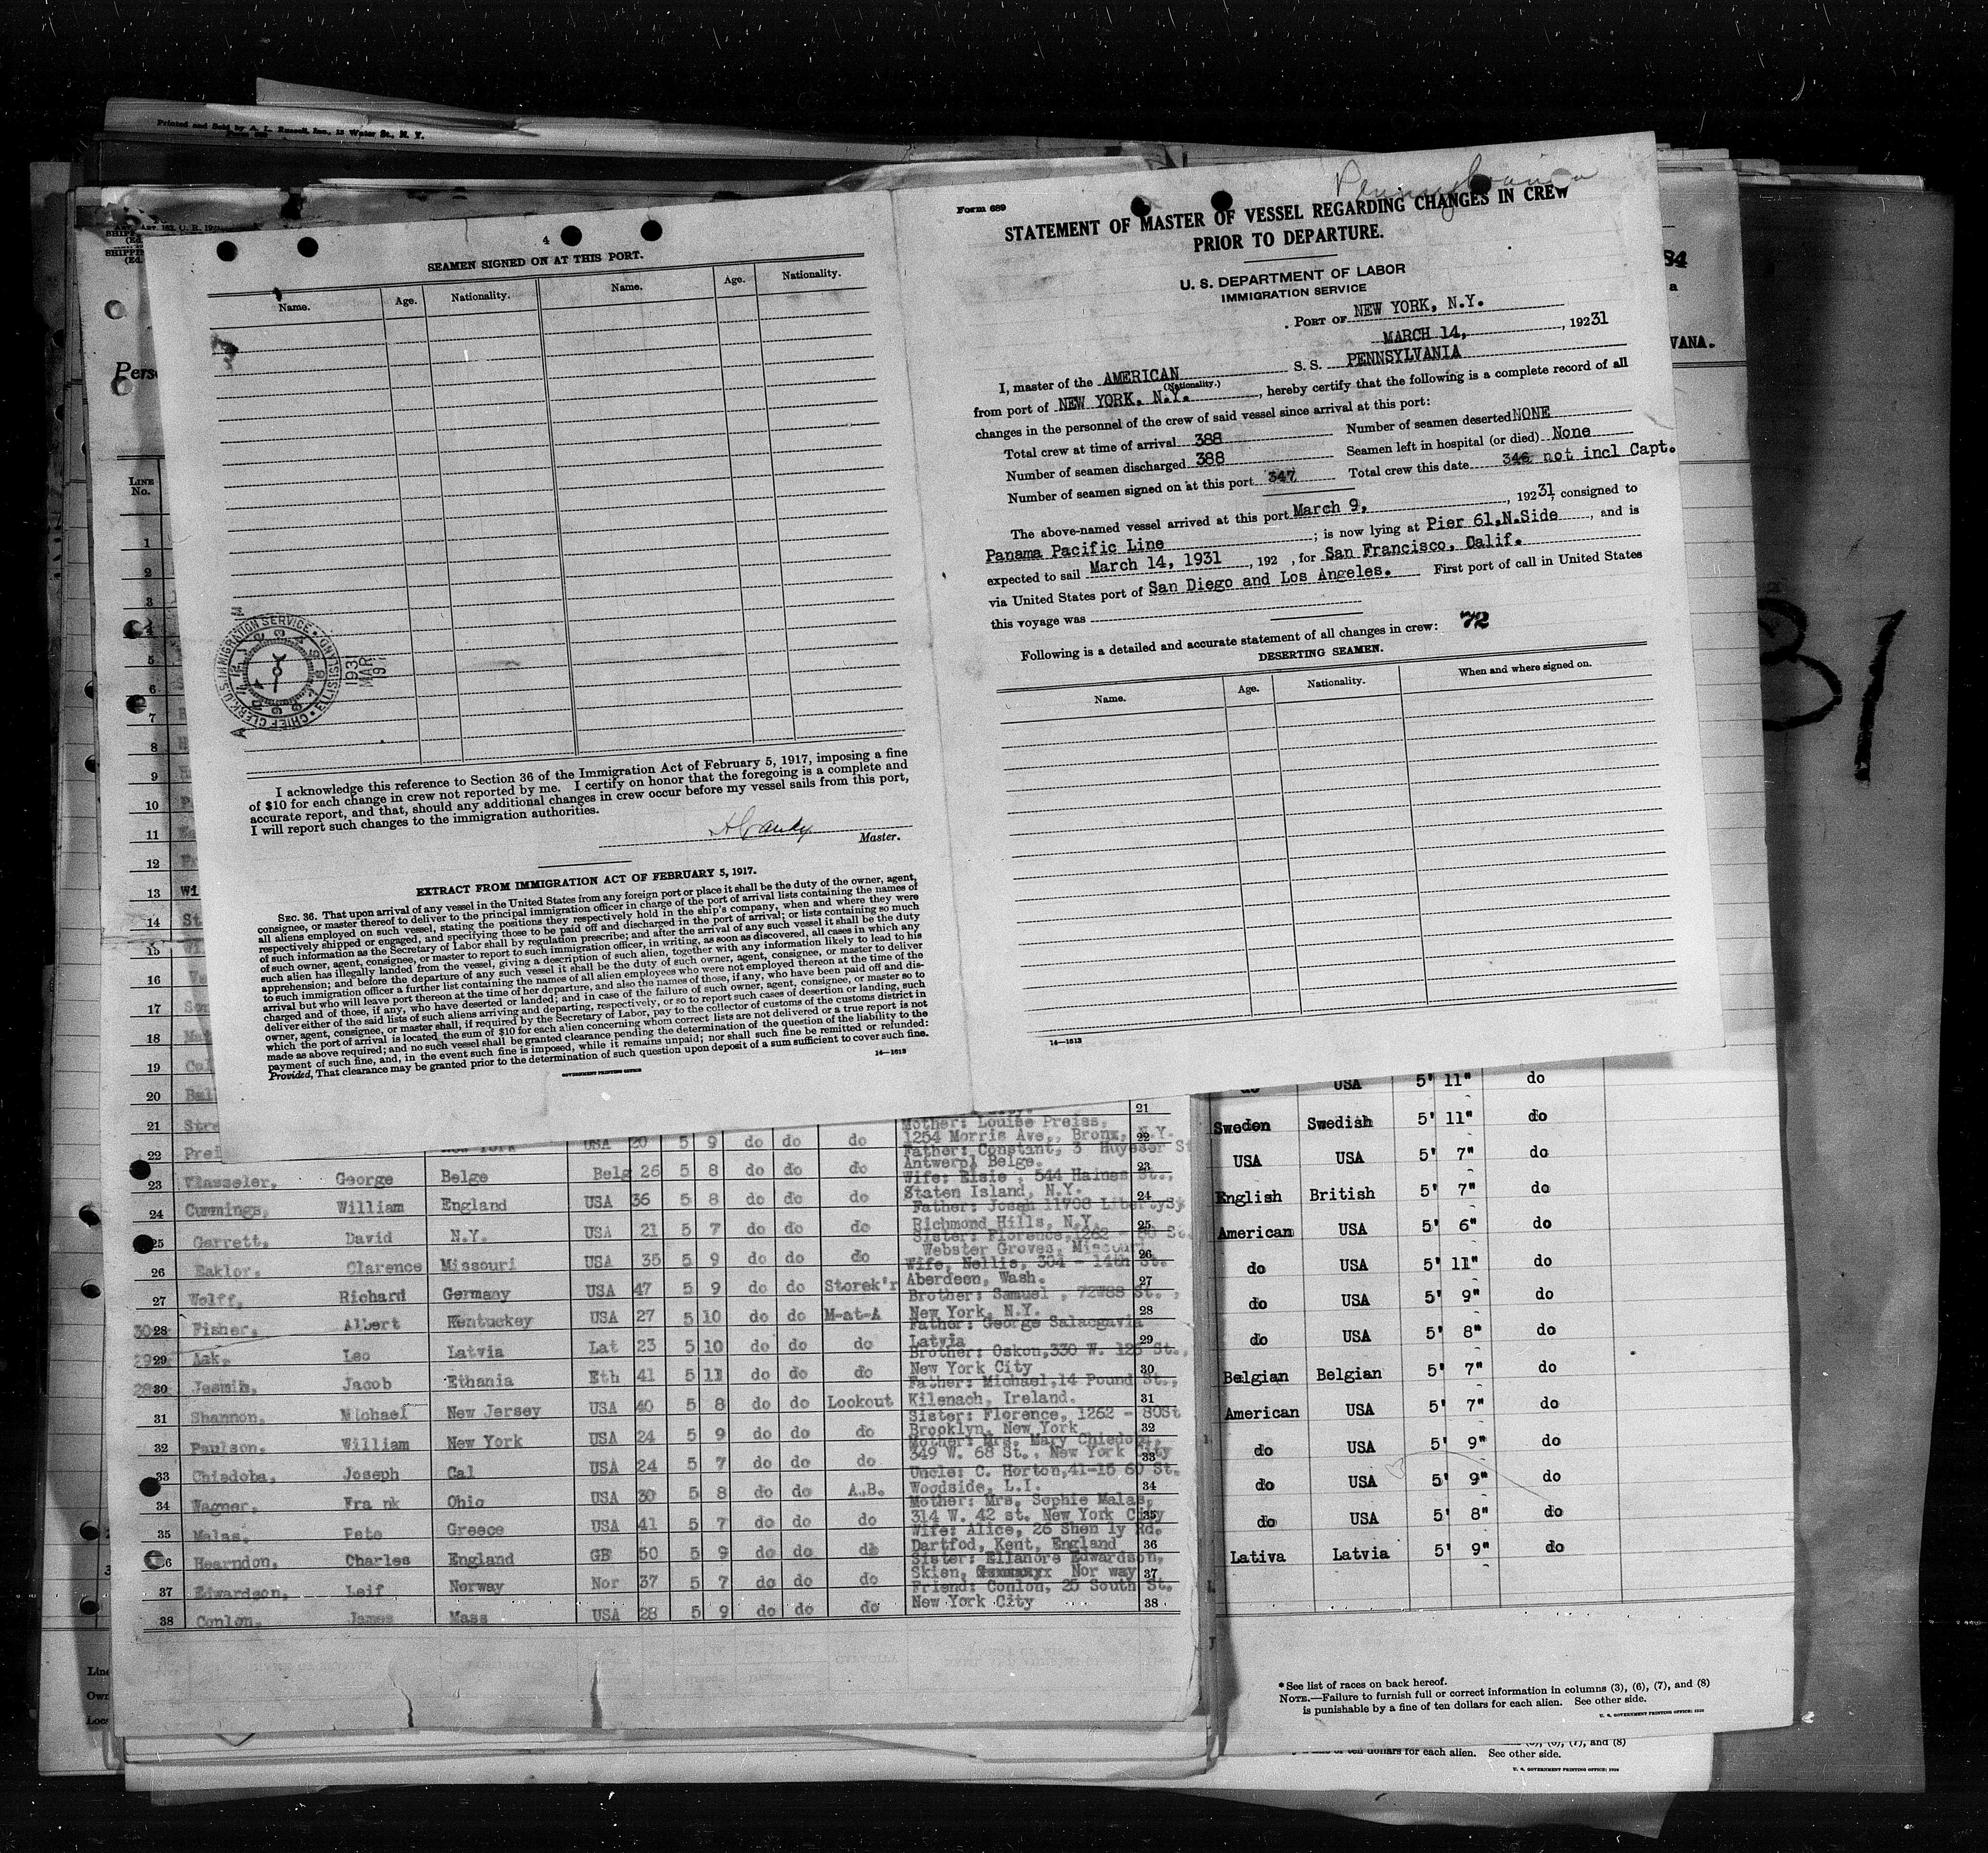 Printed and Sold by A. L. Russell, Inc., 12 Water St., N. Y.
4
SEAMEN SIGNED ON AT THIS PORT.
Name. Age. Nationality. Name. Age. Nationality.
CHIEF CLERK, U.S. IMMIGRATION SERVICE
1931 MAR
I acknowledge this reference to Section 36 of the Immigration Act of February 5, 1917, imposing a fine
of $10 for each change in crew not reported by me. I certify on honor that the foregoing is a complete and
accurate report, and that, should any additional changes in crew occur before my vessel sails from this port,
I will report such changes to the immigration authorities.
Master.
EXTRACT FROM IMMIGRATION ACT OF FEBRUARY 5, 1917.
SEC. 36. That upon arrival of any vessel in the United States from any foreign port or place it shall be the duty of the owner, agent,
consignee, or master thereof to deliver to the principal immigration officer in charge of the port of arrival lists containing the names of
all aliens employed on such vessel, stating the positions they respectively hold in the ship's company, when and where they were
respectively shipped or engaged, and specifying those to be paid off and discharged in the port of arrival; or lists containing so much
of such information as the Secretary of Labor shall by regulation prescribe; and after the arrival of any such vessel it shall be the duty
of such owner, agent, consignee, or master to report to such immigration officer, in writing, as soon as discovered, all cases in which any
such alien has illegally landed from the vessel, giving a description of such alien, together with any information likely to lead to his
apprehension; and before the departure of any such vessel it shall be the duty of such owner, agent, consignee, or master to deliver
to such immigration officer a further list containing the names of all alien employees who were not employed thereon at the time of the
arrival but who will leave port thereon at the time of her departure, and also the names of those, if any, who have been paid off and dis-
charged and of those, if any, who have deserted or landed; and in case of the failure of such owner, agent, consignee, or master so to
deliver either of the said lists of such aliens arriving and departing, respectively, or so to report such cases of desertion or landing, such
owner, agent, consignee, or master shall, if required by the Secretary of Labor, pay to the collector of customs of the customs district in
which the port of arrival is located the sum of $10 for each alien concerning whom correct lists are not delivered or a true report is not
made as above required; and no such vessel shall be granted clearance pending the determination of the question of the liability to the
payment of such fine, and, in the event such fine is imposed, while it remains unpaid; nor shall such fine be remitted or refunded:
Provided, That clearance may be granted prior to the determination of such question upon deposit of a sum sufficient to cover such fine.
14—1613
GOVERNMENT PRINTING OFFICE
Pennsylvania
Form 689
STATEMENT OF MASTER OF VESSEL REGARDING CHANGES IN CREW
PRIOR TO DEPARTURE.
U. S. DEPARTMENT OF LABOR
IMMIGRATION SERVICE
PORT OF NEW YORK, N.Y.
MARCH 14, , 19231
I, master of the AMERICAN S. S. PENNSYLVANIA
(Nationality.)
from port of NEW YORK, N.Y. , hereby certify that the following is a complete record of all
changes in the personnel of the crew of said vessel since arrival at this port:
Total crew at time of arrival 388 Number of seamen deserted NONE
Number of seamen discharged 388 Seamen left in hospital (or died) None
Number of seamen signed on at this port 347 Total crew this date 346 not incl Capt.
The above-named vessel arrived at this port March 9, , 19231, consigned to
Panama Pacific Line ; is now lying at Pier 61,N.Side , and is
expected to sail March 14, 1931 , 192 , for San Francisco, Calif.
via United States port of San Diego and Los Angeles. First port of call in United States
this voyage was
Following is a detailed and accurate statement of all changes in crew: 72
DESERTING SEAMEN.
Name. Age. Nationality. When and where signed on.
14—1613
84
VANA.
31
LINE
No.
1
2
3
4
5
6
7
8
9
10
11
12
13 Wi
14 St
15 Wi
16
17
18
19
20
21 Stre 21
Mother: Louise Preiss,
22 Prei New York USA 20 5 9 do do do 1254 Morris Ave., Bronx, N.Y. 22
Father: Constant, 3 Huyeser St
23 Vlasseler, George Belge Belg 26 5 8 do do do Antwerp, Belge. 23
Wife: Elsie, 544 Haines St.,
24 Cummings, William England USA 36 5 8 do do do Staten Island, N.Y. 24
Father: Joseph 11708 Liberty St
25 Garrett, David N.Y. USA 21 5 7 do do do Richmond Hills, N.Y. 25
Sister: Florence,1262 - 80 St.
26 Eaklor, Clarence Missouri USA 35 5 9 do do do Webster Groves, Missouri 26
Wife, Nellis, 304 - 14th St.
27 Wolff, Richard Germany USA 47 5 9 do do Storek'r Aberdeen, Wash. 27
Brother: Samuel , 72W88 St. ,
30 28 Fisher, Albert Kentuckey USA 27 5 10 do do M-at-A New York, N.Y. 28
Father: George Salacgavia
29 29 Aak, Leo Latvia Lat 23 5 10 do do do Latvia 29
Brother: Oskon,330 W. 125 St.,
28 30 Jesmin, Jacob Ethania Eth 41 5 11 do do do New York City 30
Father: Michael,14 Pound St.,
31 Shannon, Michael New Jersey USA 40 5 8 do do Lookout Kilenach, Ireland. 31
Sister: Florence, 1262 - 80St
32 Paulson, William New York USA 24 5 9 do do do Brooklyn, New York 32
Mother: Mrs. Mary Chiedoba,
33 Chiedoba, Joseph Cal USA 24 5 7 do do do 349 W. 68 St., New York City 33
Uncle: C. Horton,41-15 60 St.
34 Wagner, Frank Ohio USA 30 5 8 do do A.B. Woodside, L.I. 34
Mother: Mrs. Sophie Malas,
35 Malas, Pete Greece USA 41 5 7 do do do 314 W. 42 st. New York City 35
Wife: Alice, 26 Shen ly Rd.
36 Hearndon, Charles England GB 50 5 9 do do do Dartfod, Kent, England 36
Sister: Ellanore Edwardson,
37 Edwardson, Leif Norway Nor 37 5 7 do do do Skien, Nor way 37
Friend: Conlon, 25 South St.
38 Conlon, James Mass USA 28 5 9 do do do New York City 38
do USA 5' 11" do
Sweden Swedish 5' 11" do
USA USA 5' 7" do
English British 5' 7" do
American USA 5' 6" do
do USA 5' 11" do
do USA 5' 9" do
do USA 5' 8" do
Belgian Belgian 5' 7" do
American USA 5' 7" do
do USA 5' 9" do
do USA 5' 9" do
do USA 5' 8" do
Lativa Latvia 5' 9" do
*See list of races on back hereof.
NOTE.—Failure to furnish full or correct information in columns (3), (6), (7), and (8)
is punishable by a fine of ten dollars for each alien. See other side.
U. S. GOVERNMENT PRINTING OFFICE: 1930
(6), (7), and (8)
of ten dollars for each alien. See other side.
U. S. GOVERNMENT PRINTING OFFICE: 1930